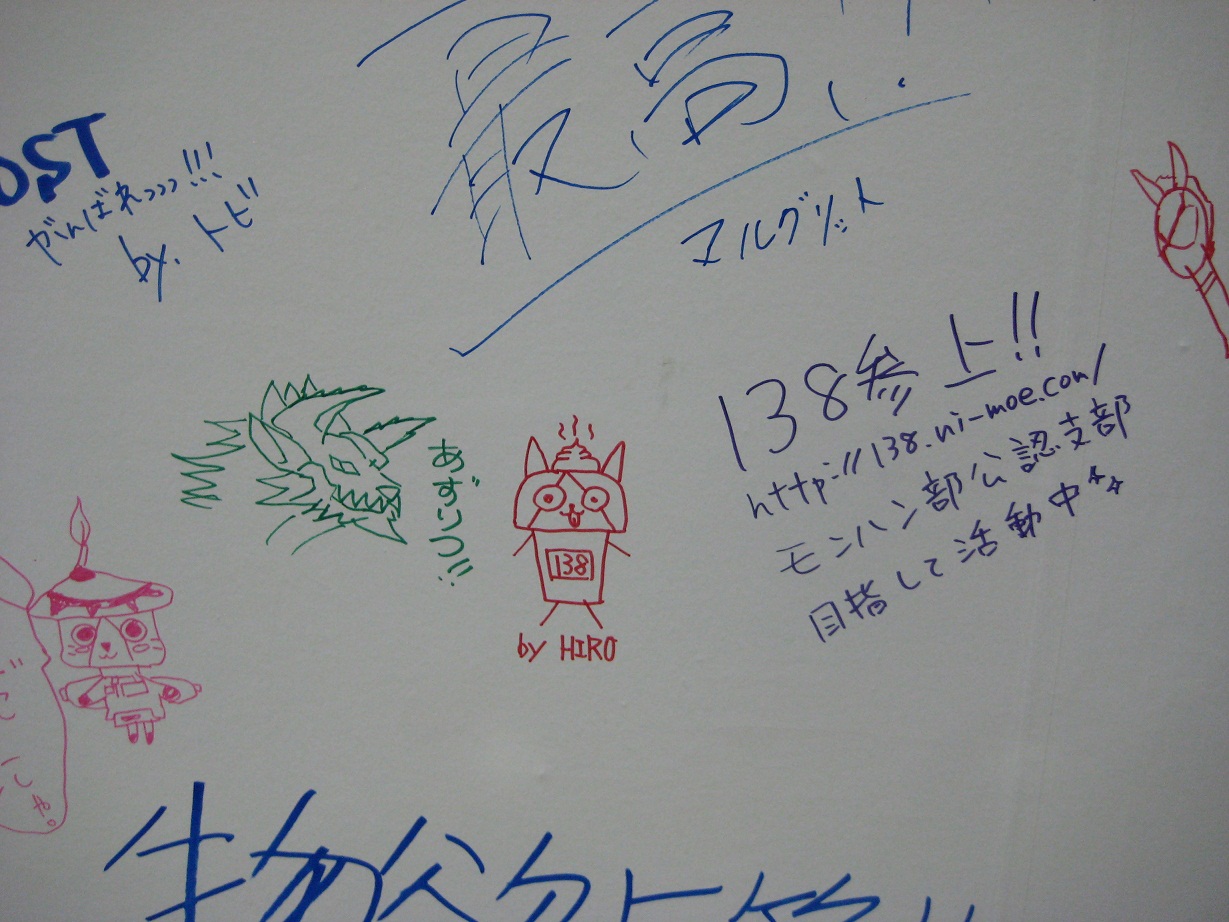 最高!!
OST
がんばれっっっ!!!
by. トビ
マルグリット
138参上!!
http://138.ni-moe.com/
モンハン部公認支部
目指して活動中☆☆
あずいつ!!
138
by HIRO